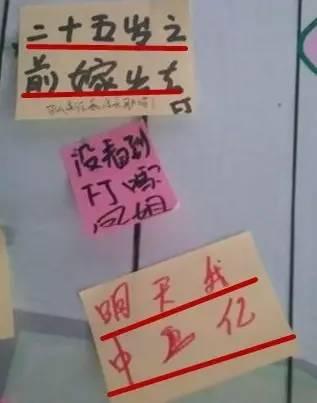 二十五岁之
前嫁出去
没看到
下面吗
凤姐
明天我
中五亿